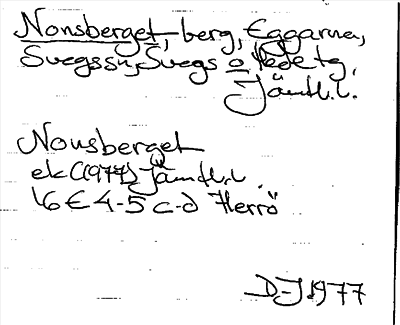 Nonsberget, berg, Eggarna,
Svegs sn, Svegs o Hede tg,
Jämtl.l.
Nonsberget
ek (1977) Jämtl.l.
16 E 4-5 c-d Herrö
D-J 1977